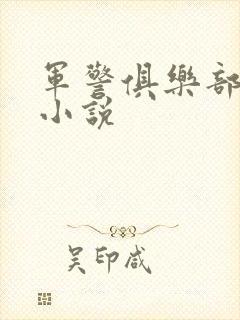 軍警俱樂部
小說
吴印咸